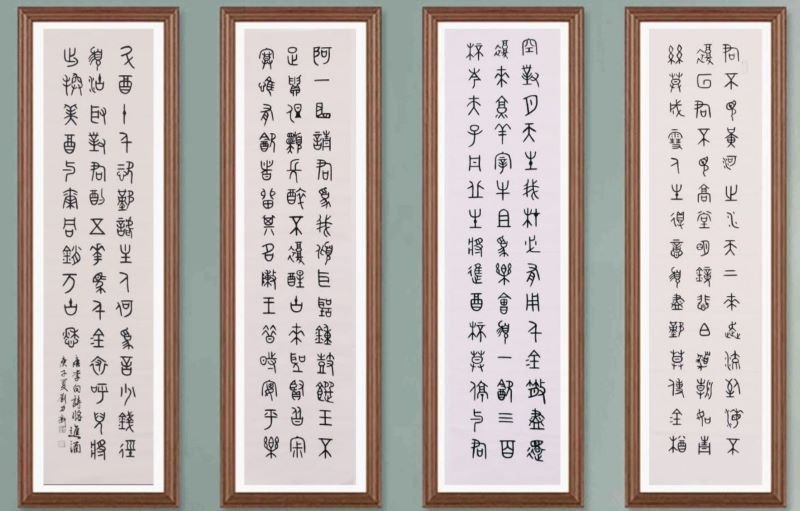 君不見黃河之水天上來奔流到海不
復回君不見高堂明鏡悲白髮朝如青
絲暮成雪人生得意須盡歡莫使金樽
空對月天生我材必有用千金散盡還
復來烹羊宰牛且為樂會須一飲三百
杯岑夫子丹丘生將進酒杯莫停與君
歌一曲請君為我傾耳聽鐘鼓饌玉不
足貴但願長醉不復醒古來聖賢皆寂
寞惟有飲者留其名陳王昔時宴平樂
斗酒十千恣歡謔主人何為言少錢徑
須沽取對君酌五花馬千金裘呼兒將
出換美酒與爾同銷萬古愁
唐李白詩將進酒
庚子夏劉